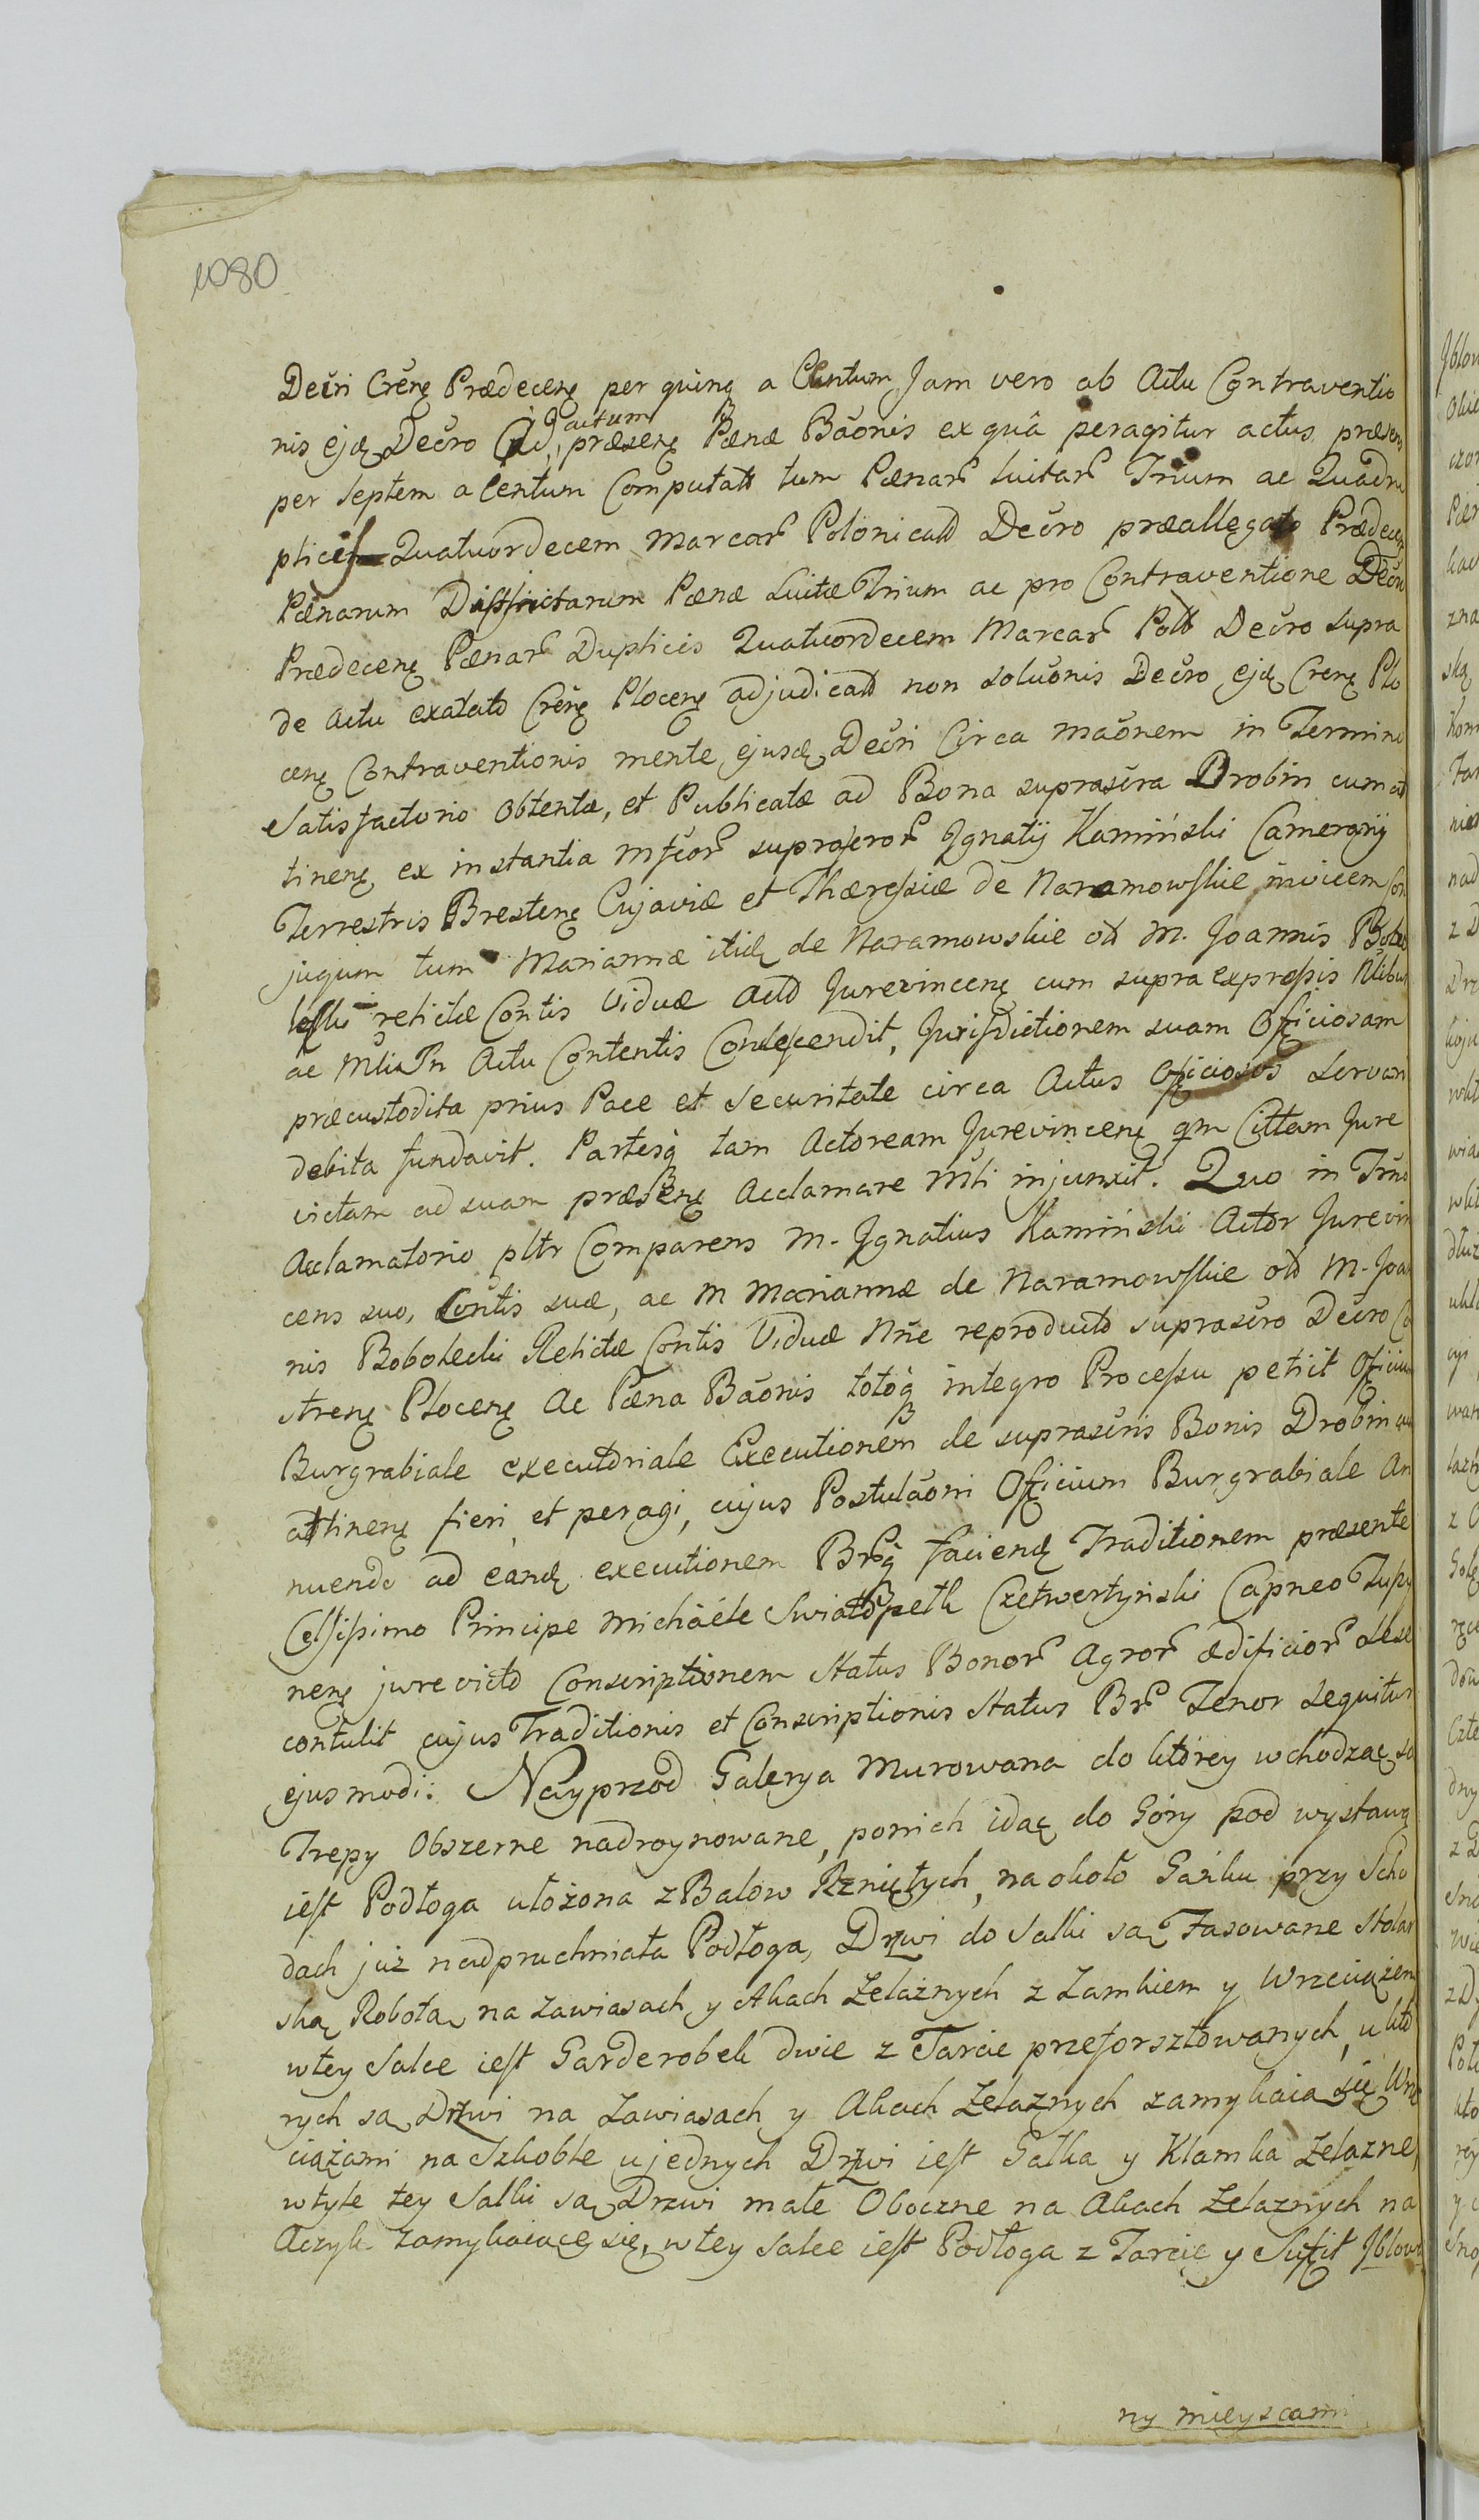 1080
Decri Crenę Prædecenę per quinq a Centum Jam vero ab Actu Contraventio
nis ejd Decro Ad actum præsenę Pænæ Baonis ex quâ peragitur actus præsens
per Septem a Centum Computatt tum Pænar luitar Trium ac Quadru
plicis Quatuordecem Marcar Polonicatt Decro præallegato Prædecenę
Pænarum Districtarum Pænæ Luitæ Trium ac pro Contraventione Decri
Prædecenę Pænar Duplicis Quatuordecem Marcar Poltt Decro supra
de Actu exalato Crenę Plocenę adjudicatt non Soluonis Decro ejd Crenę Plo
cenę Contraventionis mente ejusd Decri Circa maonem in Termino
Satisfactorio Obtentæ, et Publicatæ ad Bona suprascra Drobin cum at
tinenę ex instantia Mfcor suprascror Ignatij Kaminski Camerarij
Terrestris Brestenę Cujaviæ et Thæresiæ de Naramowskie invicem Con
jugum tum Mariannæ itid de Naramowskie old M. Joannis Bobo
leski relictæ Contis Viduæ Actd Jurevincenę cum supra expressis Nlibus
ac Mli In Actu Contentis Condescendit, Jurisdictionem suam Officiosam
præcustodita prius Pace et Securitate circa Actus Officiosos Servari
debita fundavit. Partesq tam Actoream Jurevincenę qm Cittam Jure
victam ad suam præsenę Acclamare Mli injunxit. Quo in Trno
Acclamatorio pltr Comparens M. Ignatius Kaminski Actor Jurevin
cens suo, Contis suæ, ac M Mariannæ de Naramowskie old M. Joan
nis Bobolecki Relictæ Contis Viduæ Nne reproducto suprascro Decro Ca
strenę Plocenę Ac Pæna Baonis totoq integro Processu petiit Officium
Burgrabiale executoriale Executionem de suprascris Bonis Drobin cum
attinenę fieri et peragi, cujus Postulaoni Officium Burgrabiale An
nuendo ad eand executionem Brq faciend Traditionem præsente
Celsissimo Principe Michaéle Swiatopelk Czetwertynski Capneo Zupy
nenę jurevicto Conscriptionem Status Bonor Agror ædificior Sese
contulit cujus Traditionis et Conscriptionis Status Br Tenor Sequitur
ejusmodi: Nayprzod Galerya Murowana do ktorey wchodząc są
Trepy Obszerne nadroynowane, ponich idąc do Góry pod wystawą
iest Podłoga ułożona z Balow Rzniętych, na około Gańku przy Scho
dach już nadpruchniała Podłoga, Drzwi do Salki są Fasowane Stolar
ską Robotą na zawiasach y Akach Zelaznych z Zamkiem y Wrzeciążem
w tey Salce iest Garderobek dwie z Tarcic przeforsztowanych, u kto
rych są Drzwi na Zawiasach y Akach Zelaznych zamykaią się Wrze
ciążami na Szkoble u jednych Drzwi iest Gałka y Klamka żelazne,
w tyle tey Salki są Drzwi małe Oboczne na Akach żelaznych na
Aczyk zamykaiące się, w tey Salce iest Podłoga z Tarcic y Sufit Jblow
ny mieyscami